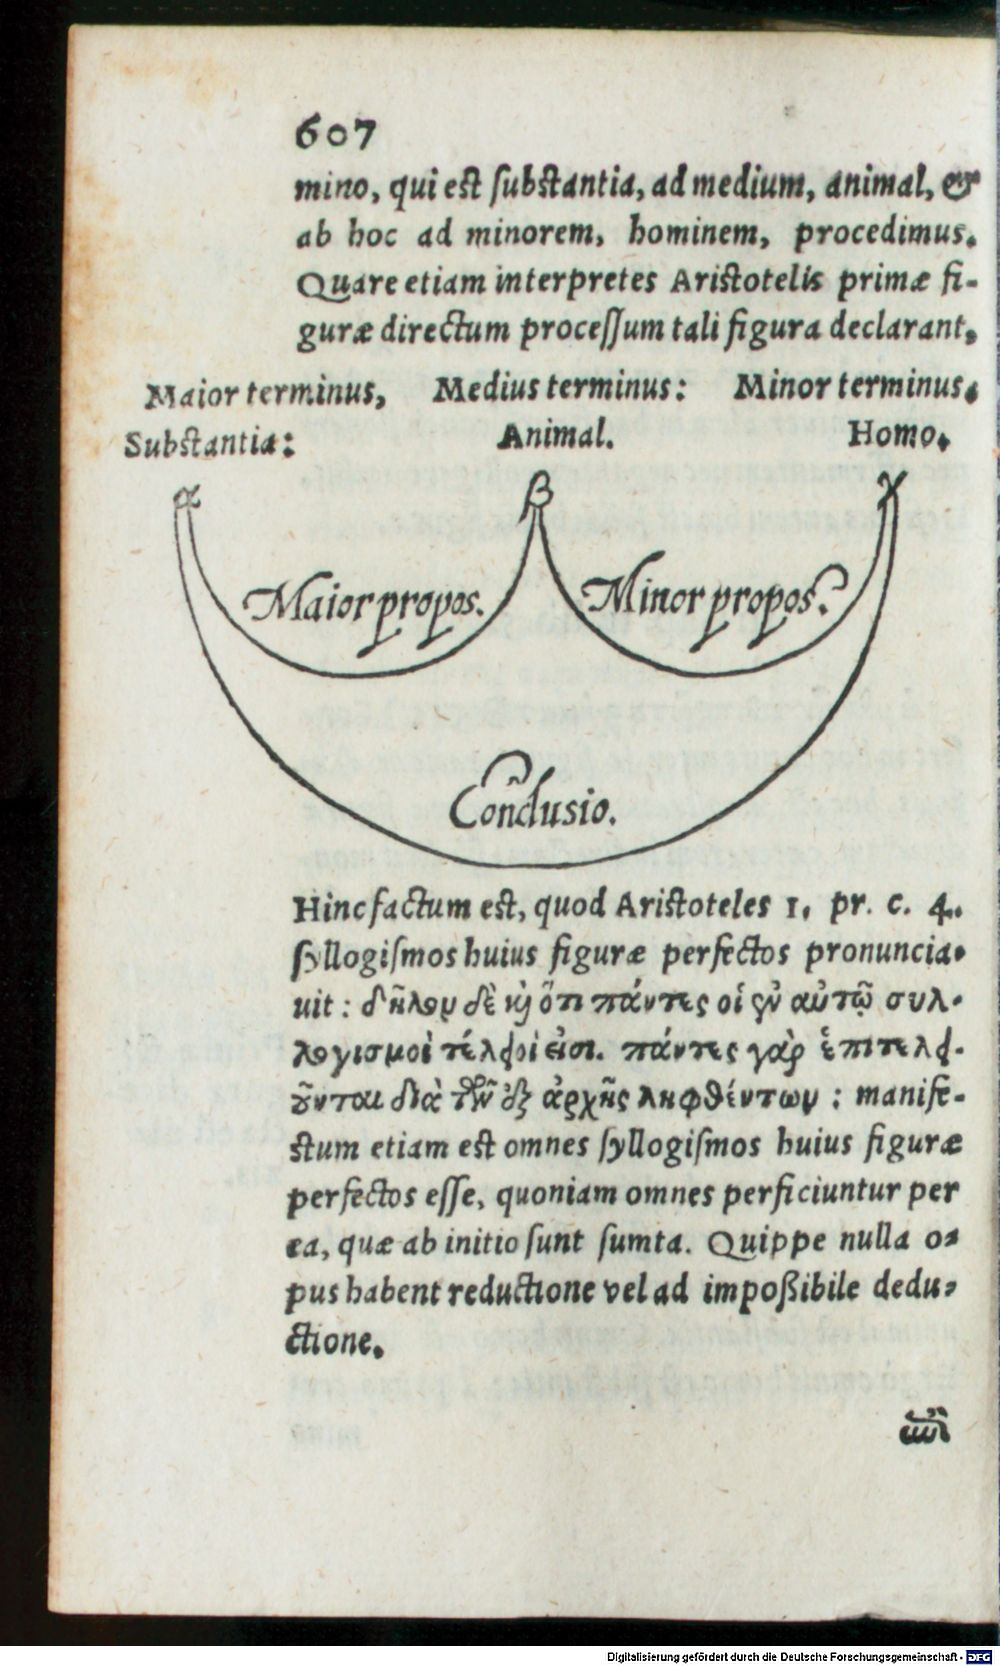 607
mino, qui est ſubſtantia, ad medium, animal, &
ab hoc ad minorem, hominem, procedimus.
Quare etiam interpretes Ariſtotelis primæ fi-
guræ directum proceſſum tali figura declarant,
Maior terminus, Medius terminus: Minor terminus.
Subſtantia: Animal. Homo.
α β γ
Maior propos. Minor propos.
Conclusio.
Hinc factum eſt, quod Ariſtoteles 1. pr. c. 4.
ſyllogiſmos huius figuræ perfectos pronuncia-
uit: δῆλον δὲ καὶ ὅτι πάντες οἱ ἐν αὐτῷ συλ-
λογισμοὶ τέλειοί εἰσι. πάντες γὰρ ἐπιτελει-
οῦνται διὰ τῶν ἐξ ἀρχῆς ληφθέντων: manife-
ſtum etiam eſt omnes ſyllogiſmos huius figuræ
perfectos eſſe, quoniam omnes perficiuntur per
ea, quæ ab initio ſunt ſumta. Quippe nulla o-
pus habent reductione vel ad impoßibile dedu-
ctione.